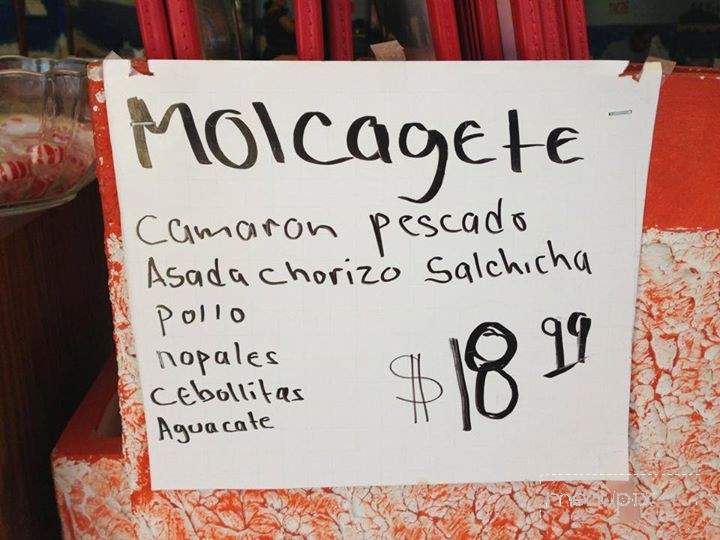 Molcagete
Camaron pescado
Asada chorizo Salchicha
pollo
nopales
$18.99
Cebollitas
Aguacate